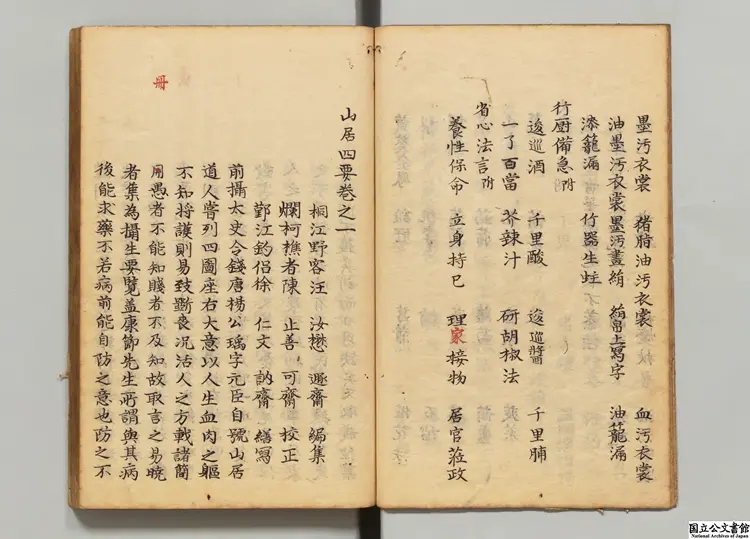 墨汚衣裳　猪脂油汚衣裳　血汚衣裳
油墨汚衣裳　墨汚畫絹　絹帛上寫字　油籠漏
漆籠漏　竹器生蛀
行厨備急附
逡巡酒　千里酸　逡巡醬　千里脯
一了百當　芥辣汁　研胡椒法
省心法言附
養性保命　立身持已　理家接物　居官莅政
冊
山居四要卷之一
桐江野客汪　汝懋　遯齋　編集
爛柯樵者陳　止善　可齋　校正
鄞江釣侶徐　仁文　訥齋　繕寫
前攝太史令錢唐楊公瑀字元臣自號山居
道人嘗列四圖座右大意以人生血肉之軀
不知將護則易致斲喪况活人之方載諸簡
用愚者不能知賤者不及知故取言之易曉
者集為攝生要覧盖康節先生所謂與其病
後能求藥不若病前能自防之意也防之不
国立公文書館
National Archives of Japan